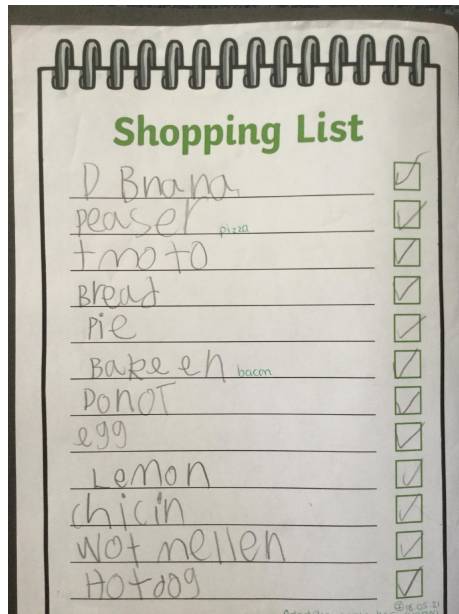 Shopping List
D Bnana
peaser pizza
tmoto
Bread
Pie
Bakeen bacon
DonoT
egg
Lemon
chicin
wot mellen
Hotdog
18.05.21